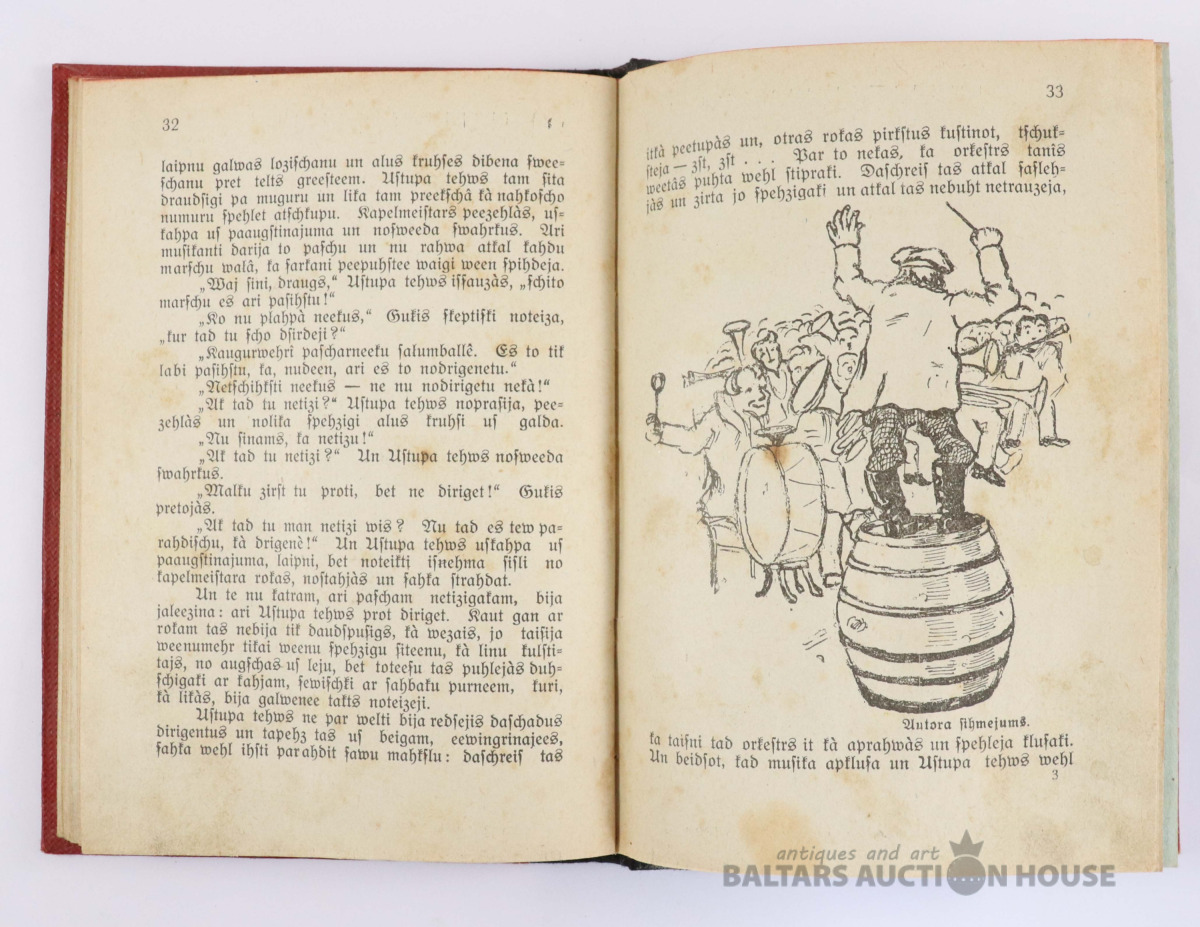 32
laipnu galwas loziſchanu un alus kruhſes dibena ſwee-
ſchanu pret telts greeſteem. Uſtupa tehws tam ſita
draudſigi pa muguru un lika tam preekſchâ kà nahkoſcho
numuru ſpehlet atſchkupu. Kapelmeiſtars peezehlàs, uſ-
kahpa uſ paaugſtinajuma un noſweeda ſwahrkus. Ari
muſikanti darija to paſchu un nu rahwa atkal kahdu
marſchu walâ, ka ſarkani peepuhſtee waigi ween ſpihdeja.
„Waj ſini, draugs,“ Uſtupa tehws iſſauzàs, „ſchito
marſchu es ari paſihſtu!“
„Ko nu plahpà neekus,“ Gukis ſkeptiſki noteiza,
„kur tad tu ſcho dſirdeji?“
„Kaugurwehri paſcharneeku ſalumballê. Es to tik
labi paſihſtu, ka, nudeen, ari es to nodrigenetu.“
„Netſchihkſti neekus — ne nu nodirigetu nekà!“
„Ak tad tu netizi?“ Uſtupa tehws nopraſija, pee-
zehlàs un nolika ſpehzigi alus kruhſi uſ galda.
„Nu ſinams, ka netizu!“
„Ak tad tu netizi?“ Un Uſtupa tehws noſweeda
ſwahrkus.
„Malku zirſt tu proti, bet ne diriget!“ Gukis
pretojàs.
„Ak tad tu man netizi wis? Nu tad es tew pa-
rahdiſchu, kà drigenè!“ Un Uſtupa tehws uſkahpa uſ
paaugſtinajuma, laipni, bet noteikti iſnehma ſiſli no
kapelmeiſtara rokas, noſtahjàs un ſahka ſtrahdat.
Un te nu katram, ari paſcham netizigakam, bija
jaleezina: ari Uſtupa tehws prot diriget. Kaut gan ar
rokam tas nebija tik daudſpuſigs, kà wezais, jo taiſija
weenumehr tikai weenu ſpehzigu ſiteenu, kà linu kulſti-
tajs, no augſchas uſ leju, bet toteeſu tas puhlejàs duh-
ſchigaki ar kahjam, ſewiſchki ar ſahbaku purneem, kuri,
kà likàs, bija galwenee takts noteizeji.
Uſtupa tehws ne par welti bija redſejis daſchadus
dirigentus un tapehz tas uſ beigam, eewingrinajees,
ſahka wehl ihſti parahdit ſawu mahkſlu: daſchreiſ tas
33
itkà peetupàs un, otras rokas pirkſtus kuſtinot, tſchuk-
ſteja — zſt, zſt . . . Par to nekas, ka orkeſtrs tanîs
weetâs puhta wehl ſtipraki. Daſchreiſ tas atkal ſaſleh-
jàs un zirta jo ſpehzigaki un atkal tas nebuht netrauzeja,
Autora ſihmejums.
ka taiſni tad orkeſtrs it kà aprahwàs un ſpehleja kluſaki.
Un beidſot, kad muſika apkluſa un Uſtupa tehws wehl
3
antiques and art
BALTARS AUCTION HOUSE